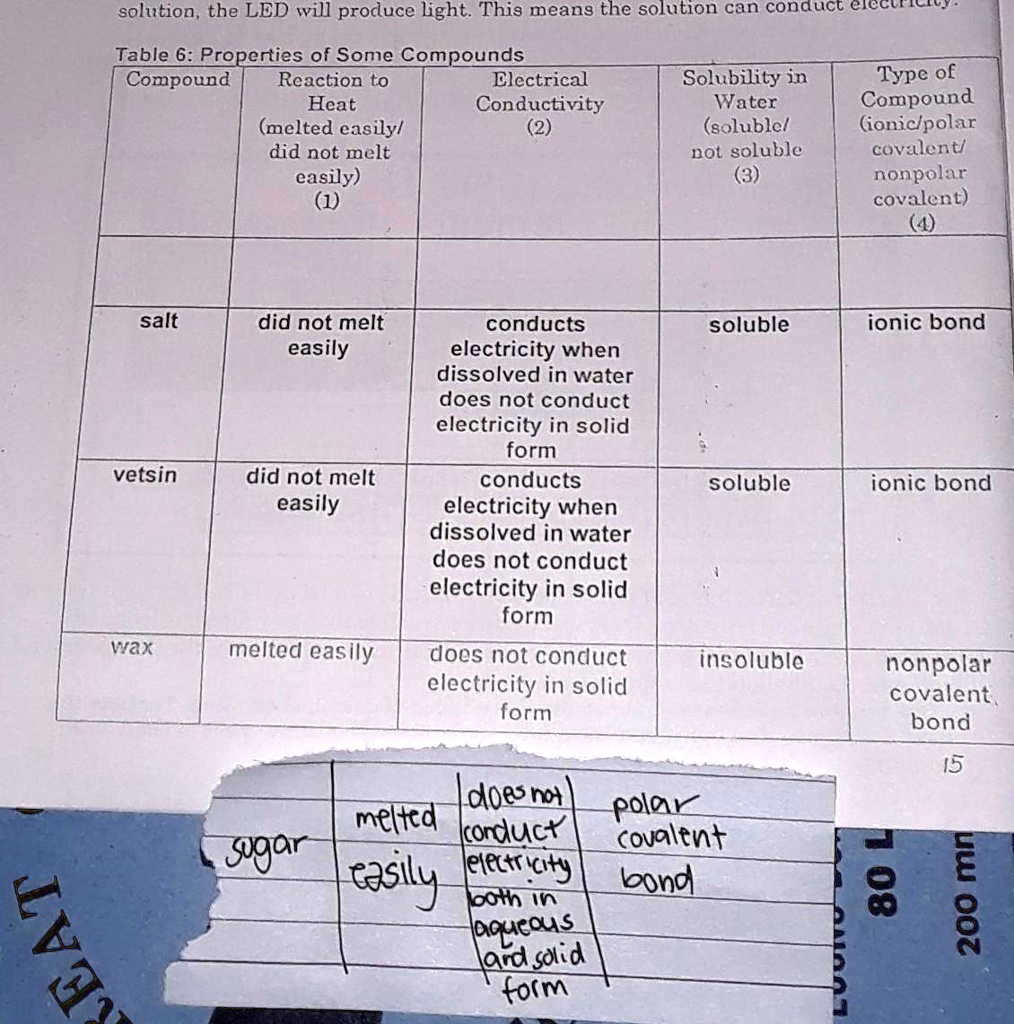 solution, the LED will produce light. This means the solution can conduct electricity.
Table 6: Properties of Some Compounds
Compound
Reaction to
Heat
(melted easily/
did not melt
easily)
(1)
Electrical
Conductivity
(2)
Solubility in
Water
(soluble/
not soluble
(3)
Type of
Compound
(ionic/polar
covalent/
nonpolar
covalent)
(4)
salt
did not melt
easily
conducts
electricity when
dissolved in water
does not conduct
electricity in solid
form
soluble
ionic bond
vetsin
did not melt
easily
conducts
electricity when
dissolved in water
does not conduct
electricity in solid
form
soluble
ionic bond
wax
melted easily
does not conduct
electricity in solid
form
insoluble
nonpolar
covalent
bond
15
sugar
melted
easily
does not
conduct
electricity
both in
aqueous
and solid
form
polar
covalent
bond
REAT
80 L
200 mm